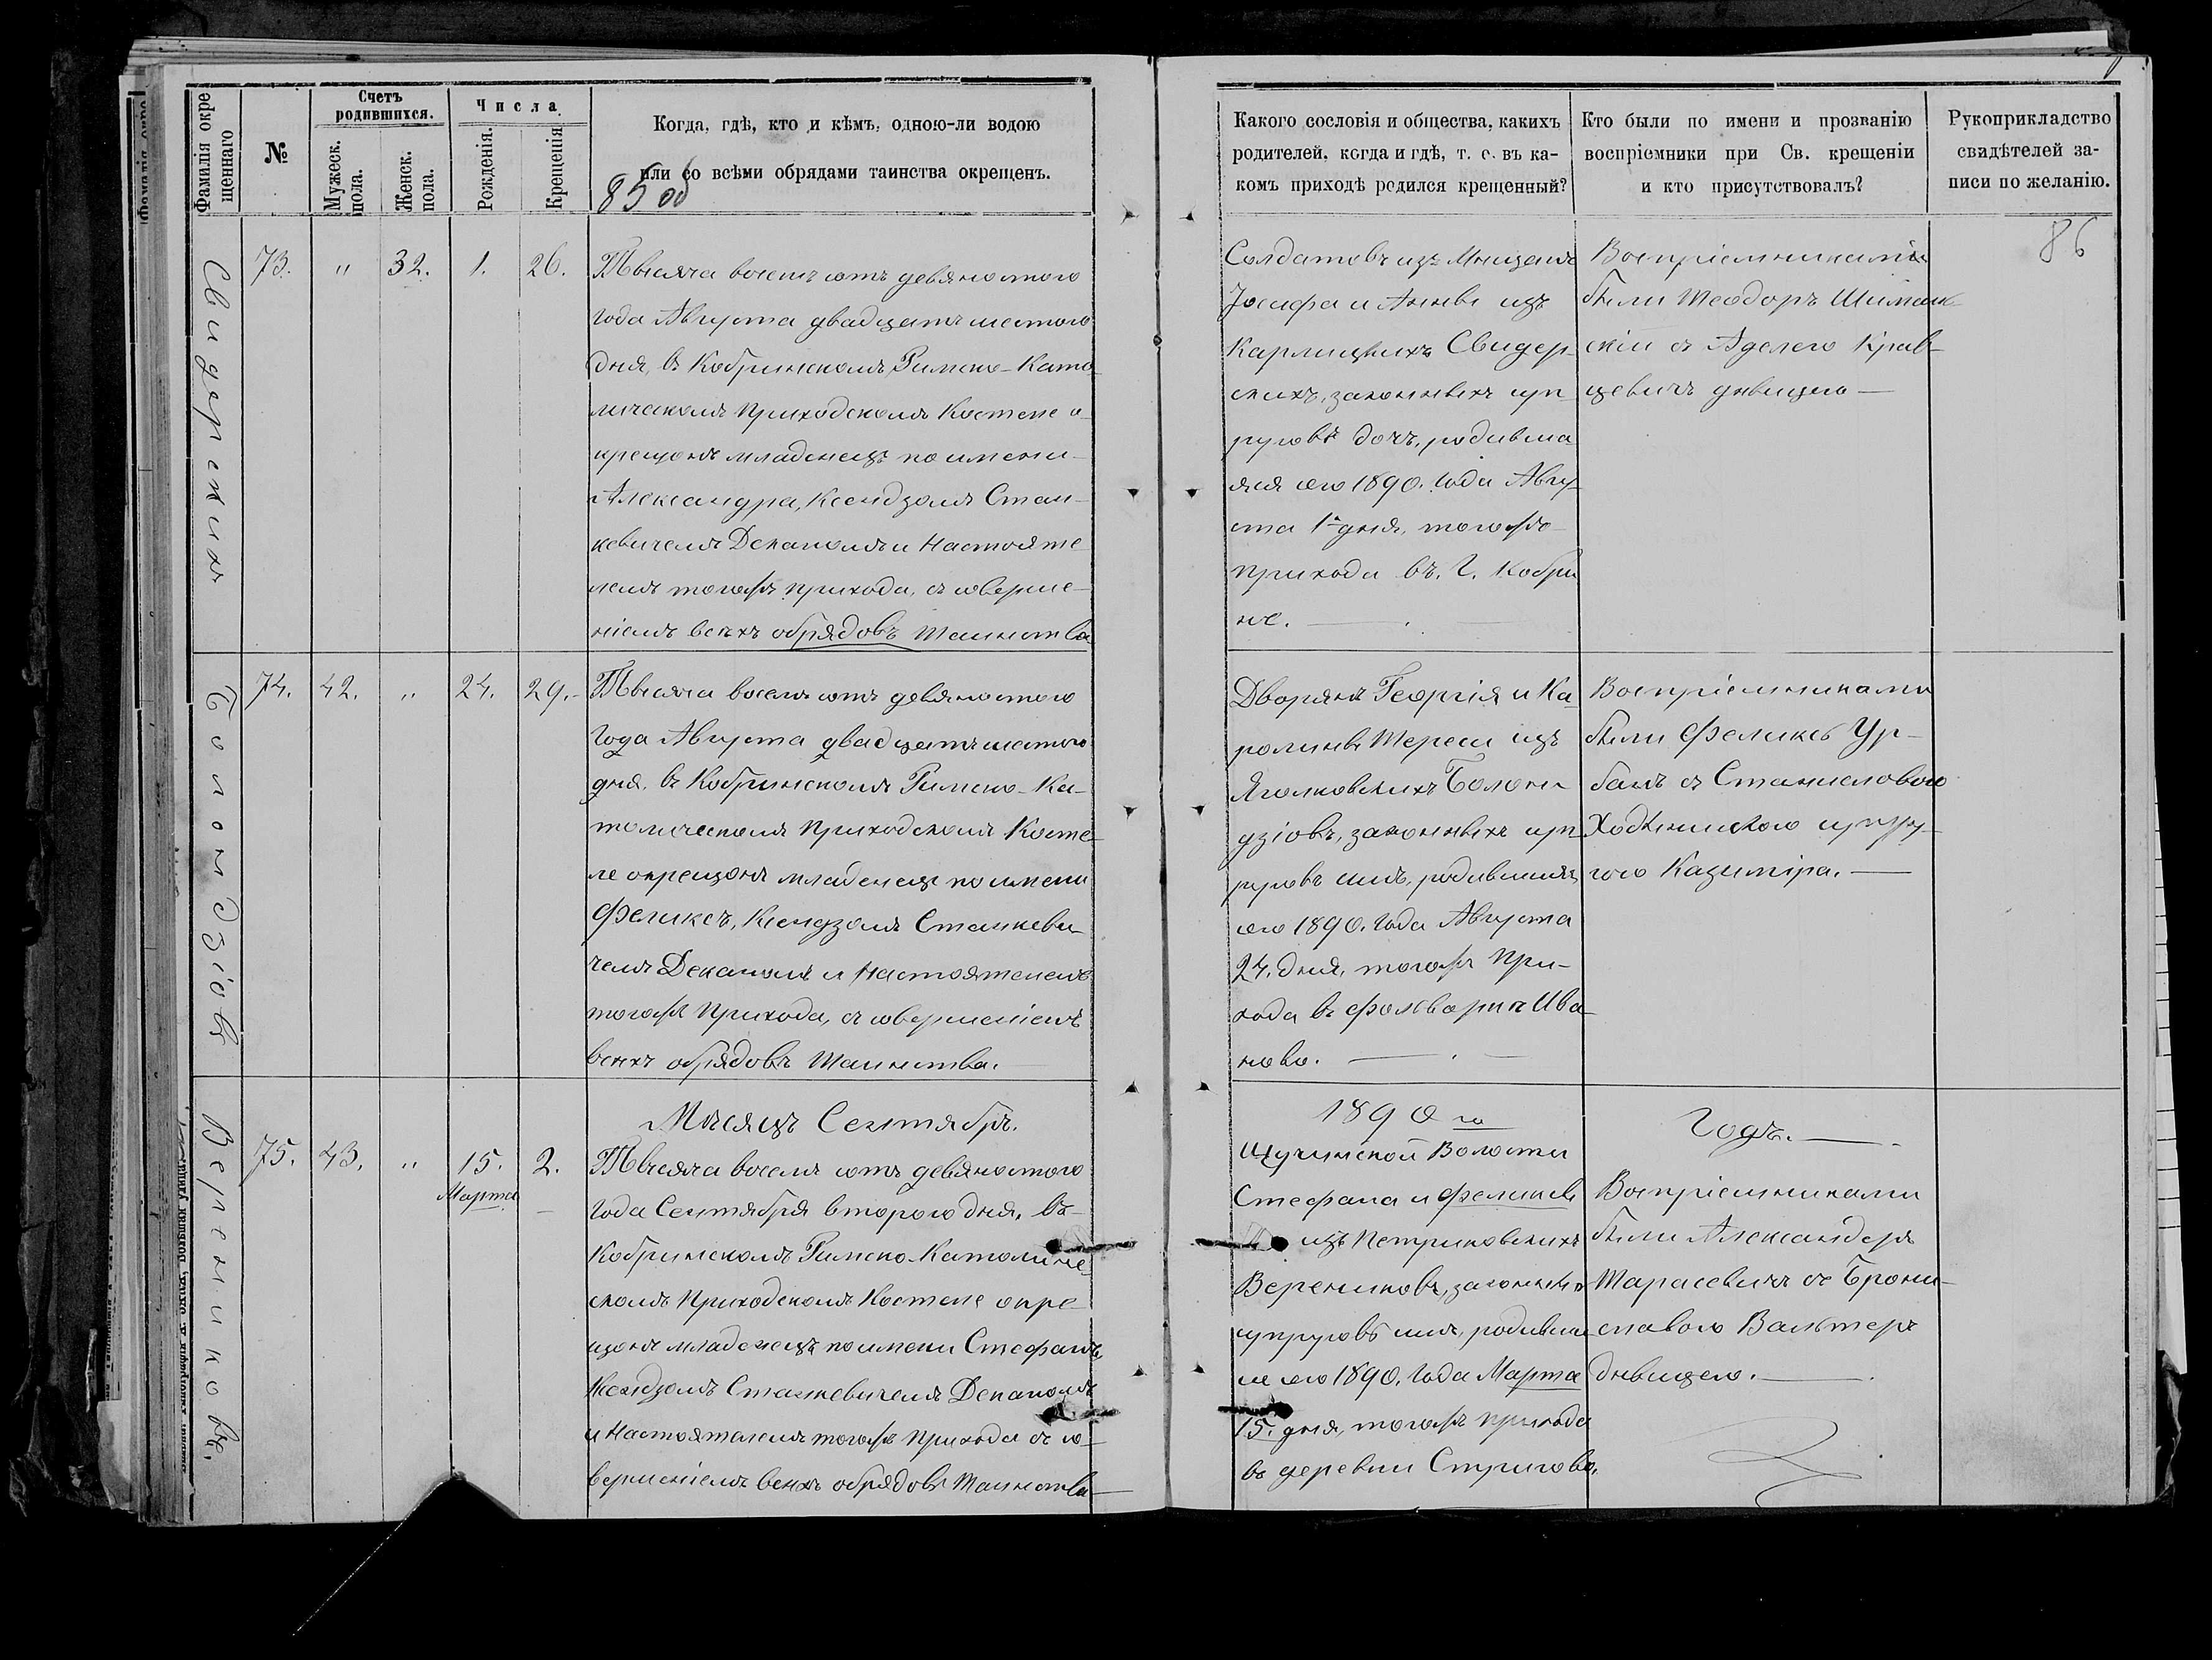 Фамилія окре
щеннаго
№
Счетъ
родившихся.
Мужеск.
пола.
Женск.
пола.
Числа
Рожденія.
Крещенія
Когда, гдѣ, кто и кѣмъ, одною-ли водою
или со всѣми обрядами таинства окрещенъ.
85 об
Свидерскихъ
73.
"
32.
1.
26.
Тысяча восемь сотъ девяностого
года Августа двадцать шестого
дня, въ Кобринскомъ Римско-Като
лическомъ Приходскомъ Костеле о-
крещонъ младенецъ по имени
Александра, Ксендзомъ Стан-
кевичемъ Деканомъ и Настояте
лемъ тогожъ прихода, съ соверше-
ніемъ всѣхъ обрядовъ Таинства
Болондзіовъ
74.
42.
"
24.
29.-
Тысяча восемъ сотъ девяностого
года Августа двадцать шестого
дня, въ Кобринскомъ Римско-Ка-
толическомъ Приходскомъ Косте-
ле окрещонъ младенецъ по имени
Феликсъ, Ксендзомъ Станкеви-
чемъ Деканомъ и Настоятелемъ
тогожъ Прихода, съ совершеніемъ
всѣхъ обрядовъ Таинства.
Мѣсяцъ Сентябрь.
Верениковъ,
75.
43.
"
15.
Марта
2.
Тысяча восемъ сотъ девяностого
года Сентября второго дня, въ
Кобринскомъ Римско-Католиче-
скомъ Приходскомъ Костеле окре-
щонъ младенецъ по имени Стефанъ,
Ксендзомъ Станкевичемъ Деканомъ
и Настоятелемъ тогожъ Прихода съ со-
вершеніемъ всѣхъ обрядовъ Таинства
Какого сословія и общества, какихъ
родителей, когда и гдѣ, т. е. въ ка-
комъ приходѣ родился крещенный?
Кто были по имени и прозванію
воспріемники при Св. крещеніи
и кто присутствовалъ?
Рукоприкладство
свидѣтелей за-
писи по желанію.
86
Солдатовъ изъ Мещанъ
Іосифа и Анны изъ
Карлицкихъ Свидер-
скихъ, законныхъ суп
руговъ дочь, родивша
яся сего 1890. года Авгу-
ста 1 дня, тогоже
прихода въ. Г. Кобри
не.
Воспріемниками
были Теодоръ Шиман
скій съ Аделею Крав-
цевичъ дѣвицею —
Дворянъ Георгія и Ка
ролины Тересы изъ
Яголковскихъ Болон
дзіовъ, законныхъ суп
руговъ сынъ, родившійся
сего 1890. года Августа
24. дня, тогожъ При-
хода въ фольваркѣ Ива
ново.
Воспріемниками
были Феликсъ Ур-
банъ съ Станиславою
супру-
гою Казиміра. —
1890 го
Годъ.
Щучинской Волости
Стефана и Феликсы
изъ Петриковскихъ
Верениковъ, законныхъ
супруговъ сынъ, родивший
ся сего 1890. года Марта
15. дня, тогожъ прихода
въ деревни Стригово.
Воспріемниками
были Александеръ
Тарасевичъ съ Брони-
славою Вальтеръ
дѣвицею.